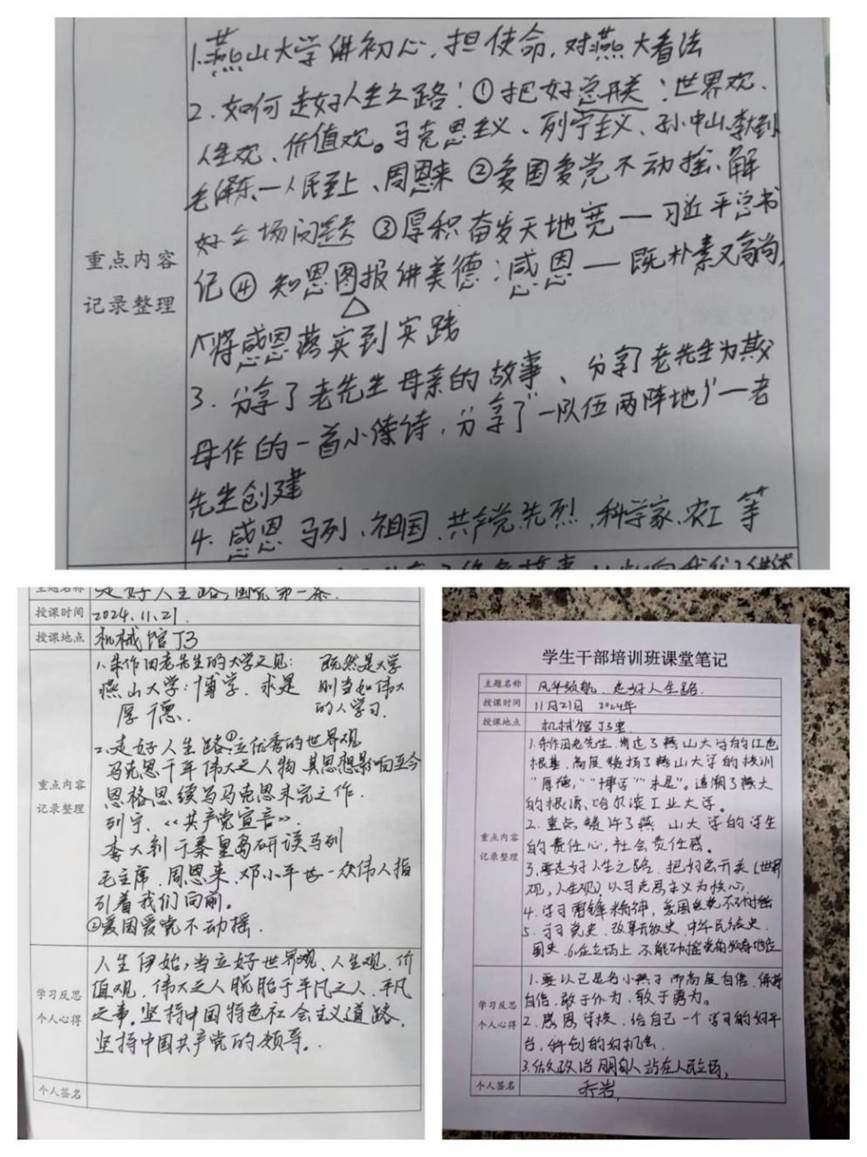 重点内容
记录整理
1.燕山大学讲初心,担使命,对燕大看法
2.如何走好人生之路:①把好总开关:世界观.
人生观、价值观。马克思主义、列宁主义、孙中山、李大钊
毛泽东—人民至上、周恩来 ②爱国爱党不动摇、解
好立场问题 ③厚积奋发天地宽—习近平总书
记 ④ 知恩图报讲美德:感恩—既朴素又高尚,
将感恩落实到实践
3.分享了老先生母亲的故事、分享了老先生为其父
母作的一首小诗,分享了"一队伍两阵地"—老
先生创建
4.感恩 马列、祖国、共产党先烈、科学家、农工 等
主题名称 走好人生路,
授课时间 2024.11.21.
授课地点 机械馆 J3
重点内容
记录整理
1、 老先生的大学之见: 既然是大学
燕山大学:博学、求是 则当如伟大
厚德. 的人学习.
2.走好人生路,①立优秀的世界观
马克思千年伟大之人物 其思想影响至今
恩格思续写马克思未完之作.
列宁.《共产党宣言》.
李大钊于秦皇岛研读马列
毛主席、周恩来、邓小平 一众伟人指
引着我们向前。
②爱国爱党不动摇.
学习反思
个人心得
人生伊始,当立好世界观、人生观、价
值观,伟大之人脱胎于平凡之人、平凡
之事。坚持中国特色社会主义道路,
坚持中国共产党的领导。
个人签名
学生干部培训班课堂笔记
主题名称 走好人生路.
授课时间 11月21日 2024年
授课地点 机械馆J3
重点内容
记录整理
1. 老先生, 燕山大学的红色
根基.高度 燕山大学的校训
"厚德,""博学""求是"。追溯了燕大
的根源、哈尔滨工业大学。
2.重点 了燕山大学的学生
的责任心,社会责任感。
3.要走好人生之路,把好总开关(世界
观,人生观)以马克思主义为核心.
4.学习雷锋精神,爱国爱党不动摇
5.学习党史、改革开放史、中华民族史、
国史. 6.在立场上 不能动摇党的领导地位
学习反思
个人心得
1.要以己是名小燕子而高度自信,保持
自信,敢于作为,敢于勇为。
2. 学校,给自己一个学习的好平
台,科创的好机会.
3. 政治明白人 站在人民立场,
个人签名 乔岩,